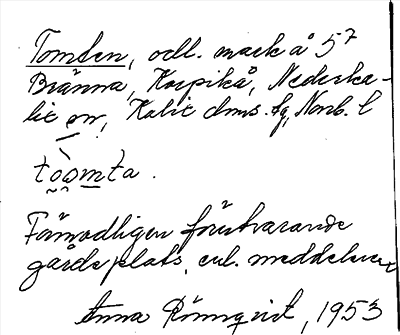 Tomten, odl. mark å 5⁷
Bränna, Korpikå, Nederka-
lix sn, Kalix dms. tg, Norb. l
tòomta.
Förmodligen förutvarande
gårdsplats, enl. meddelaren
Anna Rönnqvist, 1953